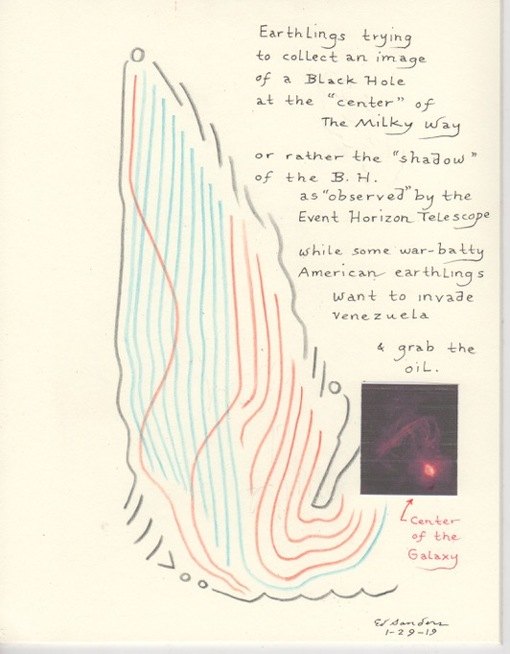 Earthlings trying
to collect an image
of a Black Hole
at the "center" of
The Milky Way
or rather the "shadow"
of the B.H.
as "observed" by the
Event Horizon Telescope
while some war-batty
American earthlings
want to invade
venezuela
& grab the
oil.
Center
of the
Galaxy
Ed Sanders
1-29-19